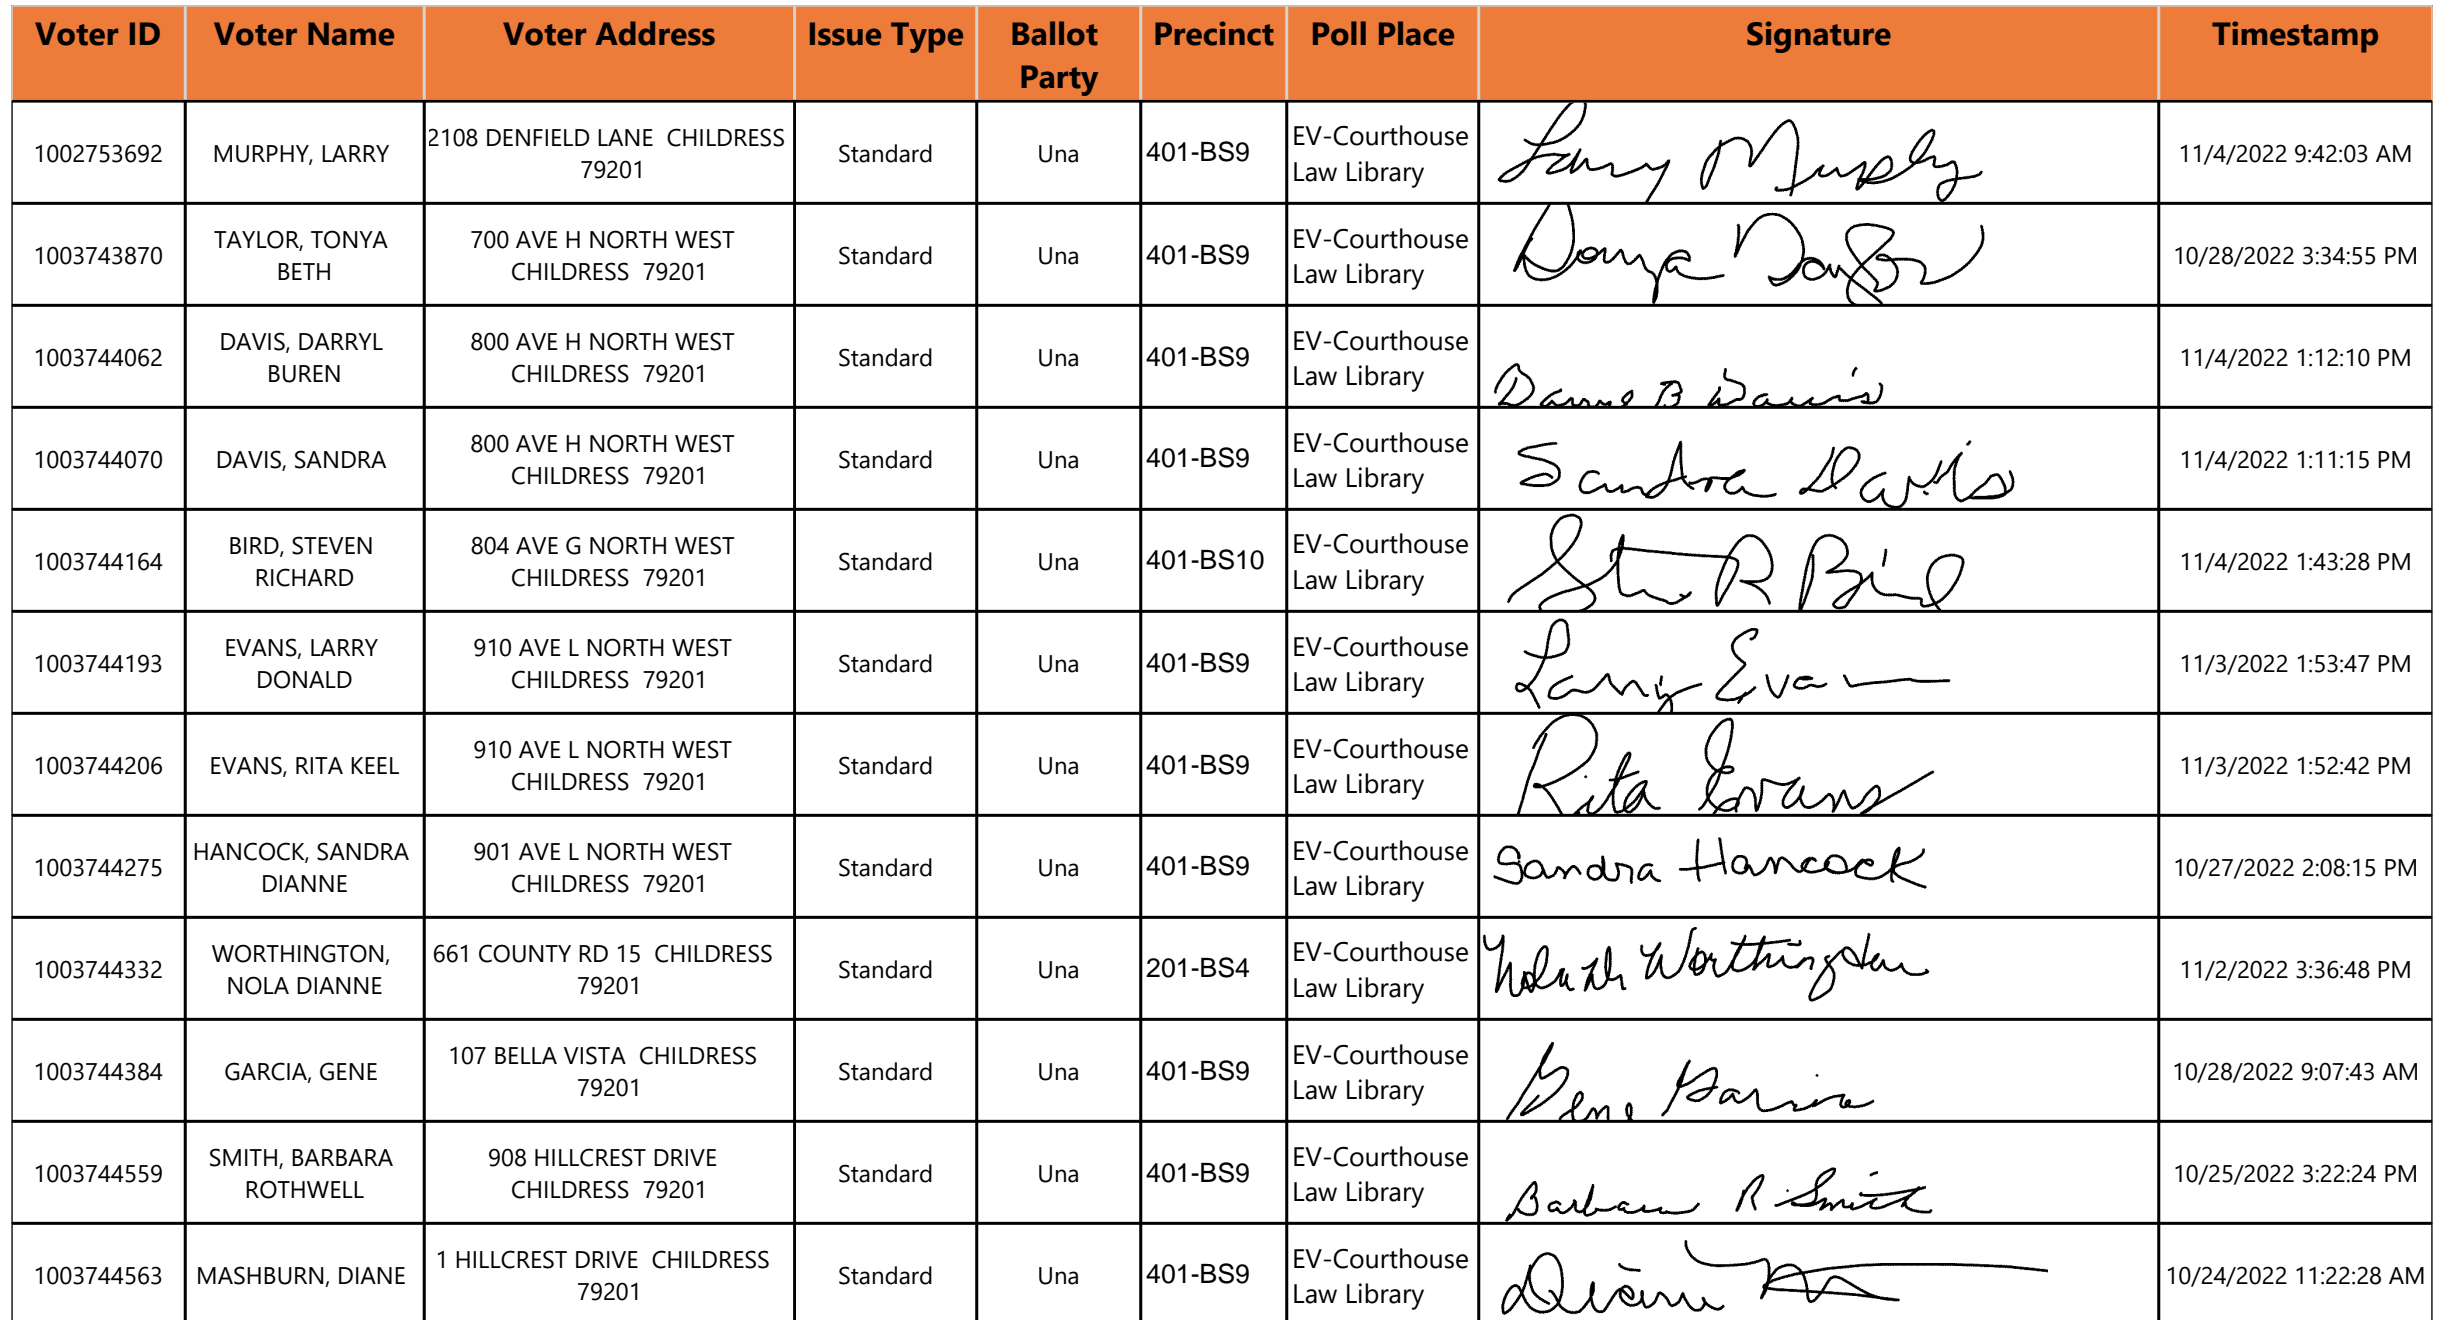 Voter ID Voter Name Voter Address Issue Type Ballot Party Precinct Poll Place Signature Timestamp
1002753692 MURPHY, LARRY 2108 DENFIELD LANE CHILDRESS 79201 Standard Una 401-BS9 EV-Courthouse Law Library Larry Murphy 11/4/2022 9:42:03 AM
1003743870 TAYLOR, TONYA BETH 700 AVE H NORTH WEST CHILDRESS 79201 Standard Una 401-BS9 EV-Courthouse Law Library Tonya Taylor 10/28/2022 3:34:55 PM
1003744062 DAVIS, DARRYL BUREN 800 AVE H NORTH WEST CHILDRESS 79201 Standard Una 401-BS9 EV-Courthouse Law Library B Davis 11/4/2022 1:12:10 PM
1003744070 DAVIS, SANDRA 800 AVE H NORTH WEST CHILDRESS 79201 Standard Una 401-BS9 EV-Courthouse Law Library Sandra Davis 11/4/2022 1:11:15 PM
1003744164 BIRD, STEVEN RICHARD 804 AVE G NORTH WEST CHILDRESS 79201 Standard Una 401-BS10 EV-Courthouse Law Library R Bird 11/4/2022 1:43:28 PM
1003744193 EVANS, LARRY DONALD 910 AVE L NORTH WEST CHILDRESS 79201 Standard Una 401-BS9 EV-Courthouse Law Library Larry Evans 11/3/2022 1:53:47 PM
1003744206 EVANS, RITA KEEL 910 AVE L NORTH WEST CHILDRESS 79201 Standard Una 401-BS9 EV-Courthouse Law Library Rita Evans 11/3/2022 1:52:42 PM
1003744275 HANCOCK, SANDRA DIANNE 901 AVE L NORTH WEST CHILDRESS 79201 Standard Una 401-BS9 EV-Courthouse Law Library Sandra Hancock 10/27/2022 2:08:15 PM
1003744332 WORTHINGTON, NOLA DIANNE 661 COUNTY RD 15 CHILDRESS 79201 Standard Una 201-BS4 EV-Courthouse Law Library Nola Worthington 11/2/2022 3:36:48 PM
1003744384 GARCIA, GENE 107 BELLA VISTA CHILDRESS 79201 Standard Una 401-BS9 EV-Courthouse Law Library Gene Garcia 10/28/2022 9:07:43 AM
1003744559 SMITH, BARBARA ROTHWELL 908 HILLCREST DRIVE CHILDRESS 79201 Standard Una 401-BS9 EV-Courthouse Law Library Barbara R Smith 10/25/2022 3:22:24 PM
1003744563 MASHBURN, DIANE 1 HILLCREST DRIVE CHILDRESS 79201 Standard Una 401-BS9 EV-Courthouse Law Library Diane 10/24/2022 11:22:28 AM